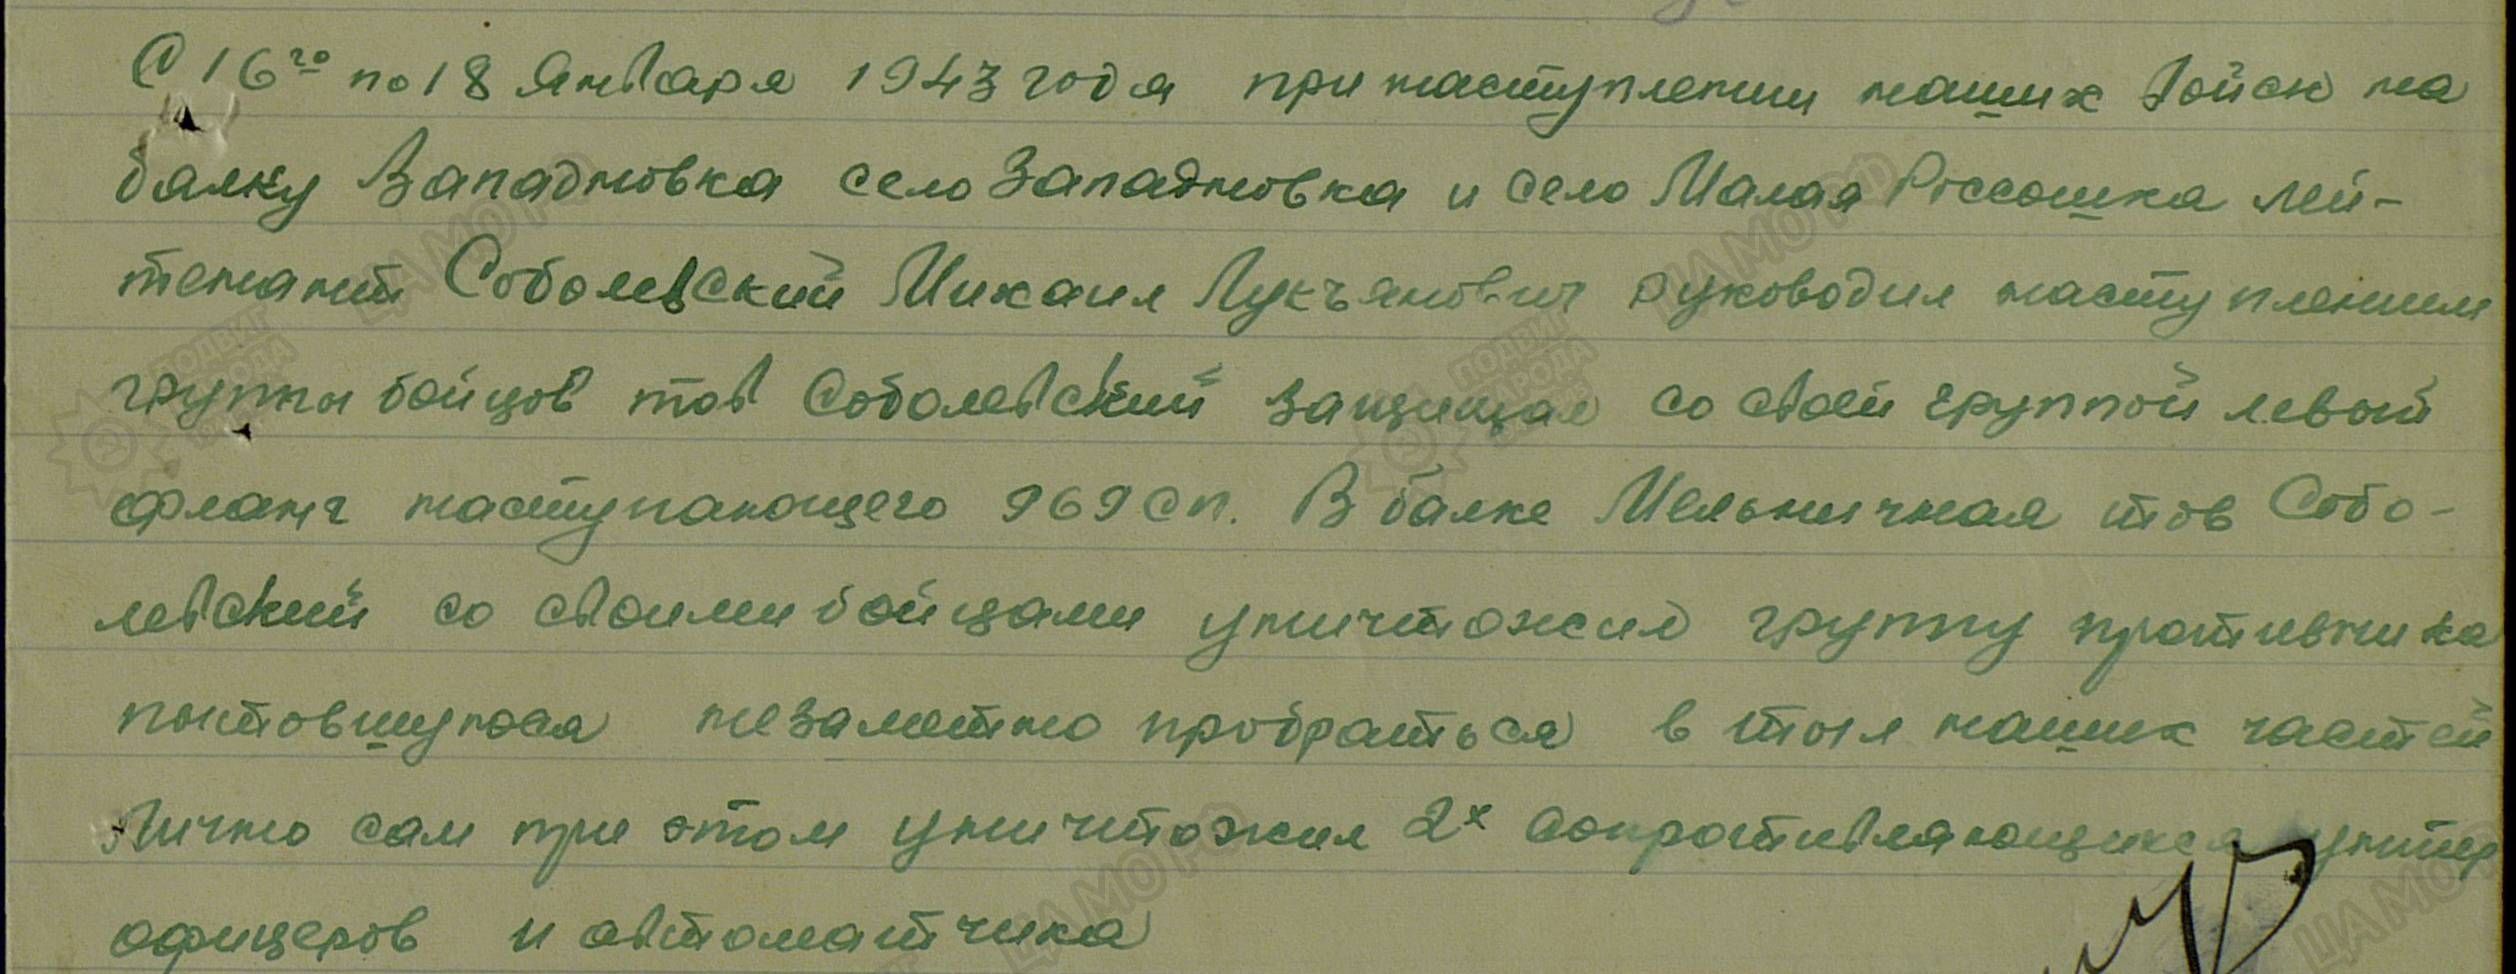 С 16го по 18 Января 1943 года при наступлении наших войск на
балку Западновка село Западновка и село Малая Россошка лей-
тенант Соболевский Михаил Лукъянович руководил наступлением
группы бойцов тов Соболевский защищал со своей группой левый
фланг наступающего 969 сп. В балке Мельничная тов Собо-
левский со своими бойцами уничтожил группу противника
пытовшуюся незаметно пробраться в тыл наших частей
Лично сам при этом уничтожил 2х сопротивляющихся унтер
офицеров и автоматчика